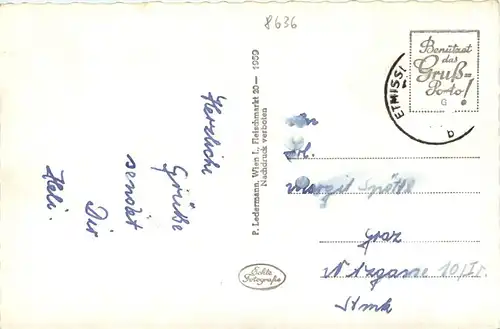 8636
Herzliche
Grüße
sendet
Dir
Heli.
P. Ledermann, Wien I., Fleischmarkt 20 — 1959
Nachdruck verboten
Echte
Fotografie
Benützet
das
Gruß=
Porto!
ETMISSL
b
An
Margit
Graz
10/II.
Stmk